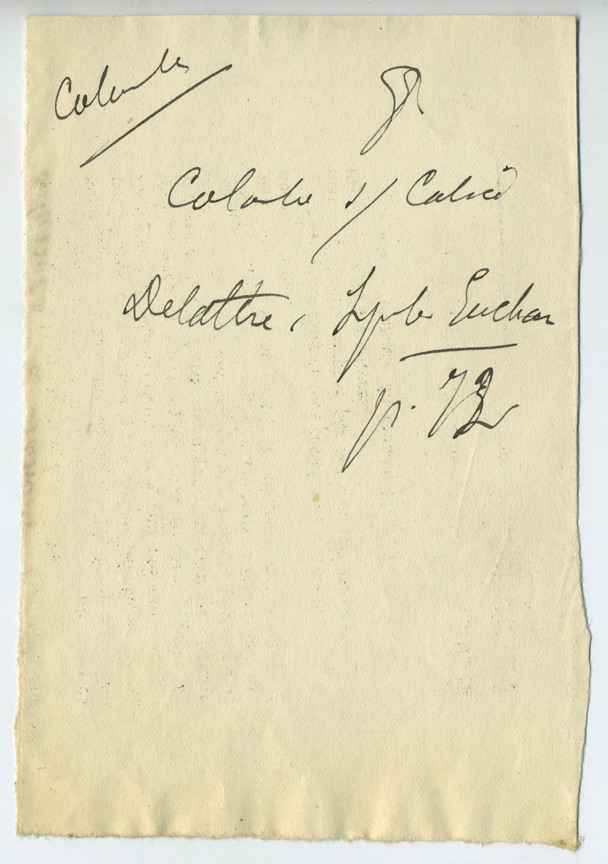 Colombe
Colombe s/ Calice
Delattre, Symb. Euchar
p. 72